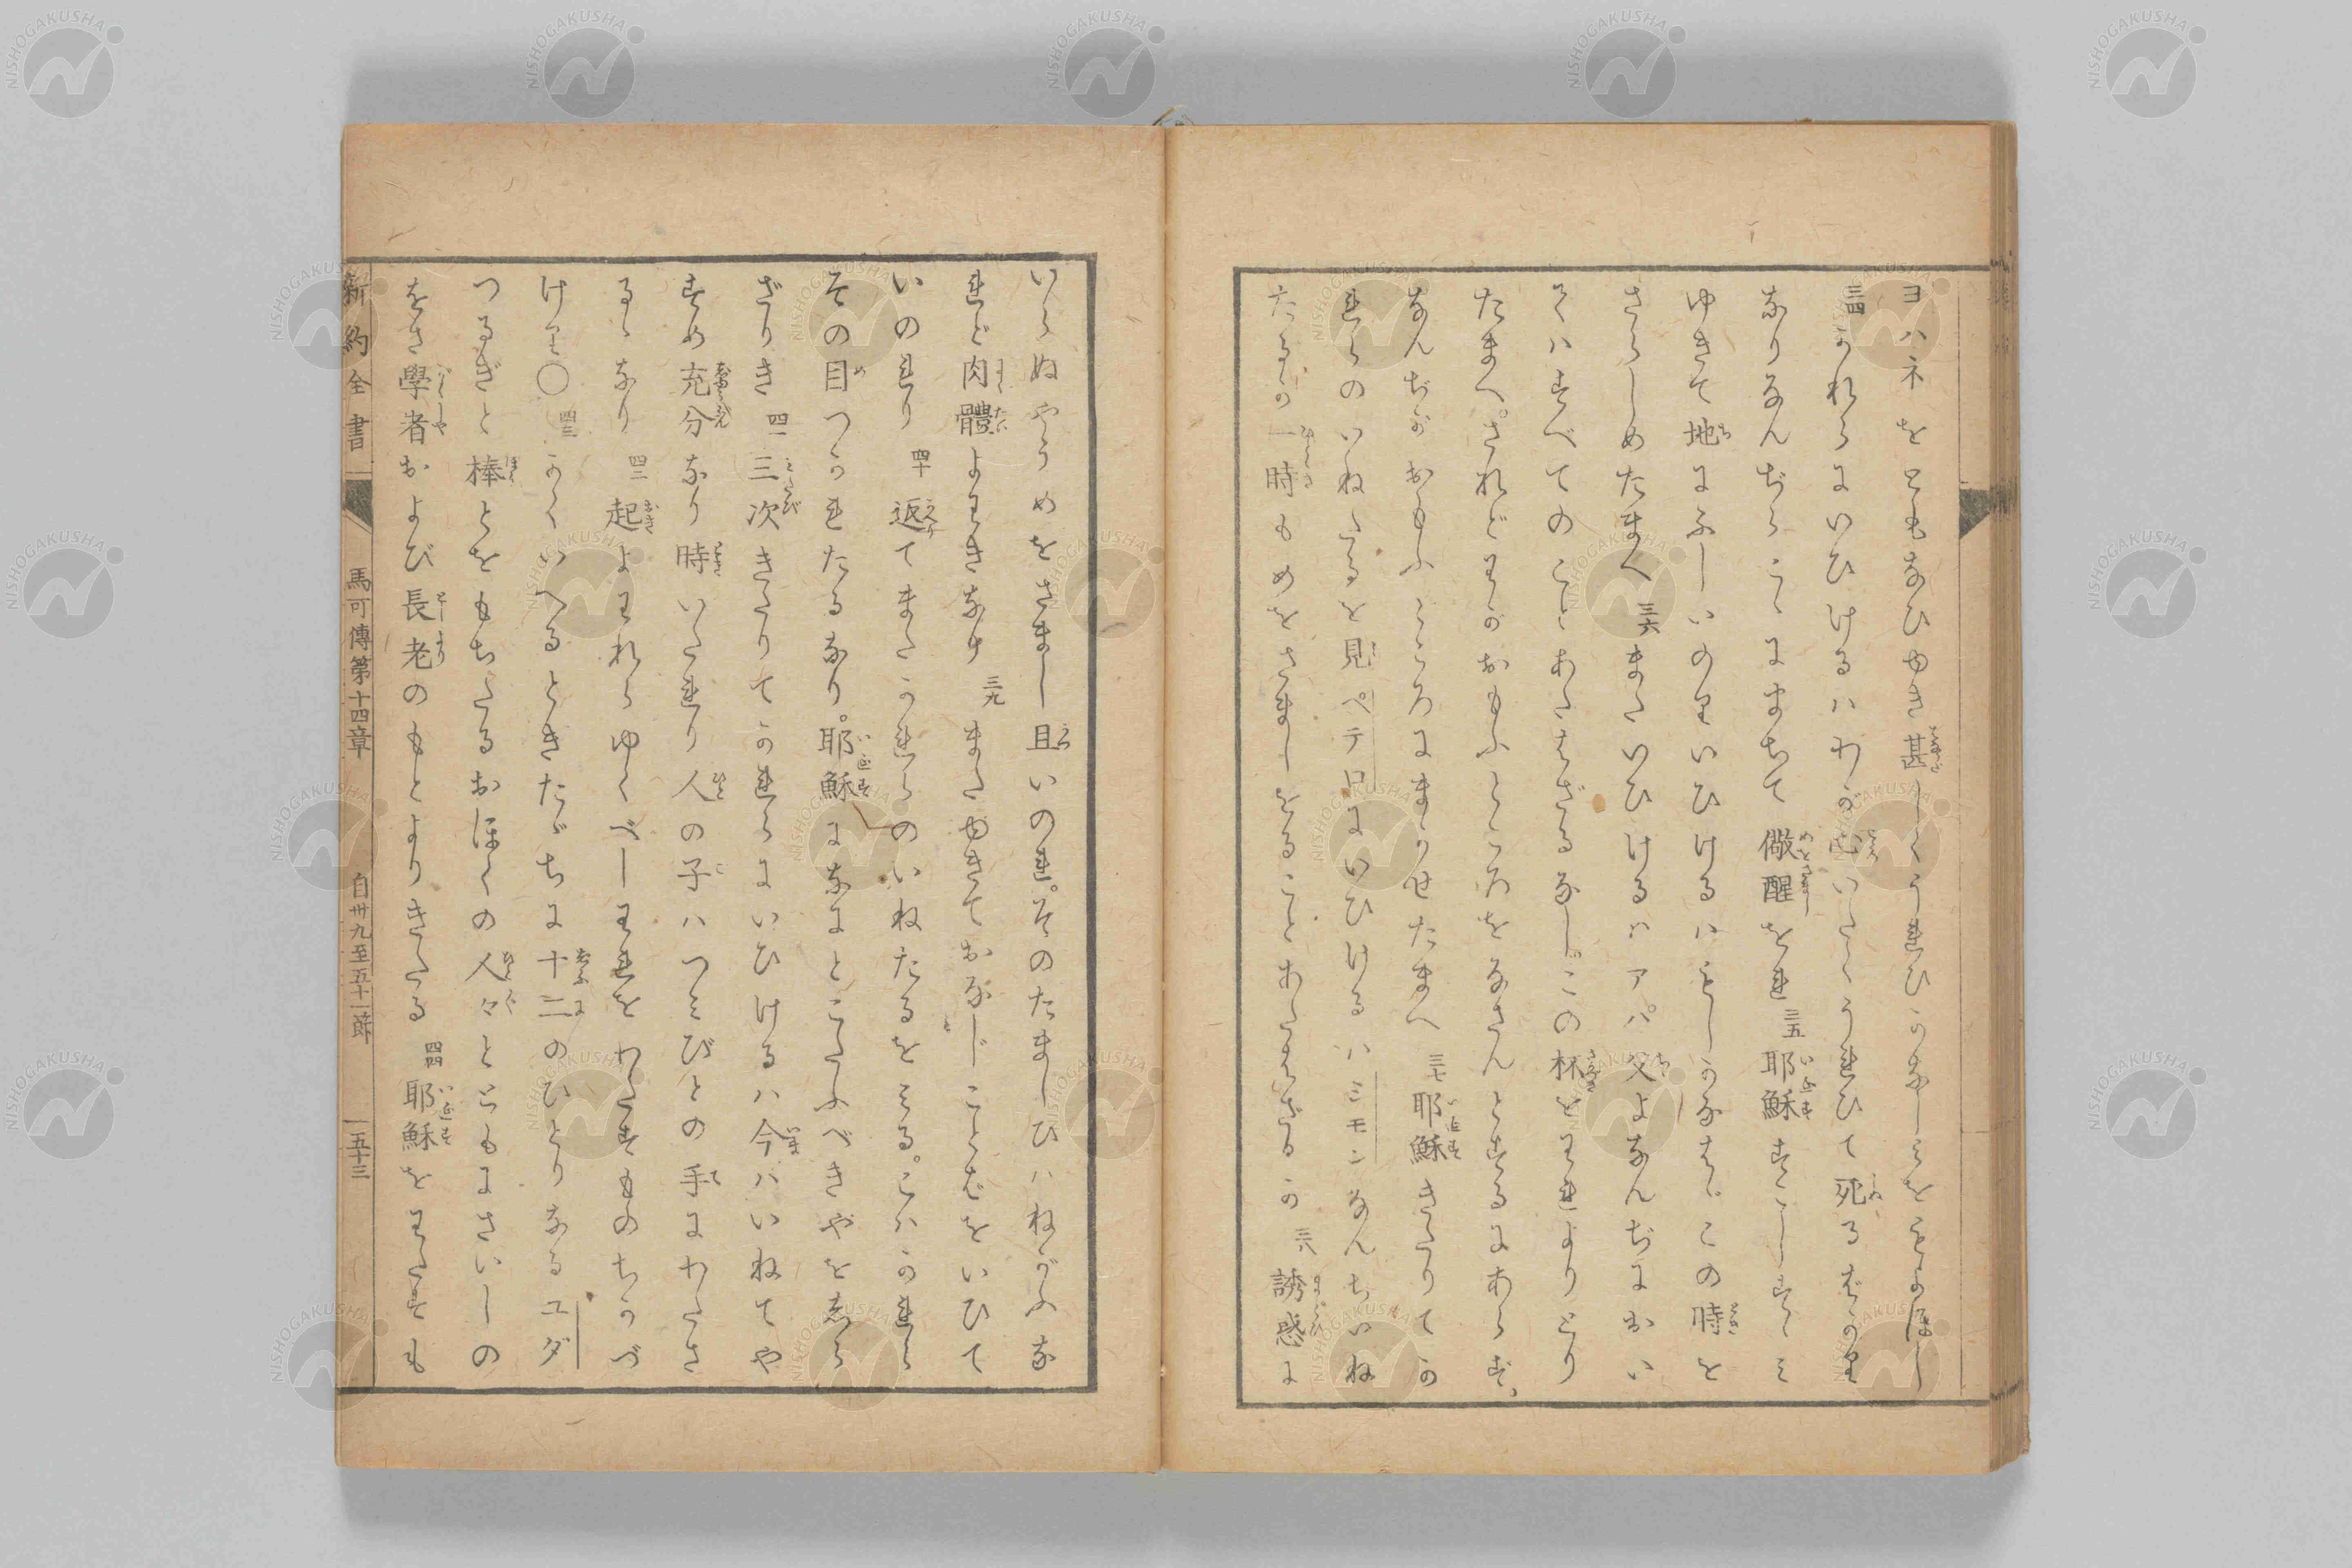 ヨハネをともなひゆき甚しくうれひかなしみをもよほし
三四かれらにいひけるハわが心いたくうれひて死るばかり
なりなんぢらこゝにまちて儆醒をれ三五耶穌すこしすゝミ
ゆきて地にふしいのりいひけるハもしかなはゞこの時を
さらしめたまへ三六またいひけるハアパ父よなんぢにおい
てハすべてのことあたはざるなし。この杯をわれよりとり
たまへ。されどわがおもふところをなさんとするにあらず、
なんぢがおもふところにまかせたまへ三七耶穌きたりてか
れらのいねたるを見ペテロにいひけるハシモンなんぢいね
たるか一時もめをさましをることあたはざるか三八誘惑に
いらぬやうめをさまし且いのれ。そのたましひハねがふな
れど肉體よわきなり三九またゆきておなじことばをいひて
いのれり四十返てまたかれらのいねたるをみる。こハかれら
その目つかれたるなり。耶穌になにとこたふべきやをしら
ざりき四一三次きたりてかれらにいひけるハ今ハいねてや
すめ充分なり時いたれり人の子ハつみびとの手にわたさ
るゝなり四二起よわれらゆくべしわれをわたすものちかづ
けり〇四三かくいへるときたゞちに十二のひとりなるユダ
つるぎと棒とをもちたるおほくの人々とともにさいしの
をさ學者および長老のもとよりきたる四四耶穌をわたすも
新約全書 馬可傳第十四章 自卅九至五十一節 一五十三